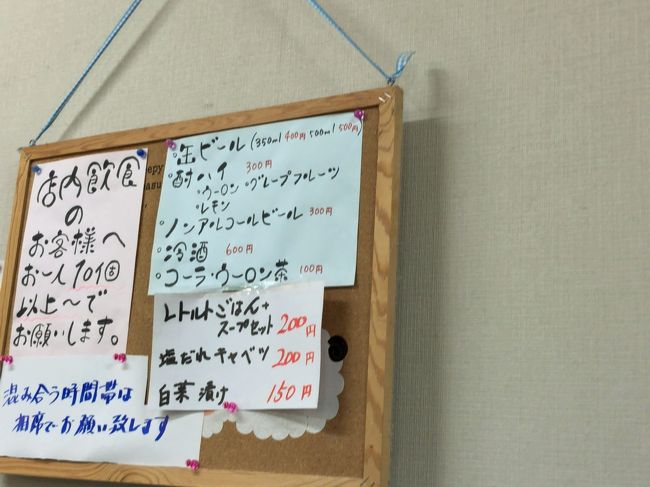 店内飲食
の
お客様へ
お一人10個
以上〜で
お願いします。
混み合う時間帯は
相席でお願い致します
°缶ビール(350ml 400円 500ml 500円)
°酎ハイ 300円
・ウーロン・グレープフルーツ
・レモン
°ノンアルコールビール 300円
°冷酒 600円
°コーラ・ウーロン茶 100円
レトルトごはん+
スープセット 200円
塩だれキャベツ 200円
白菜漬け 150円